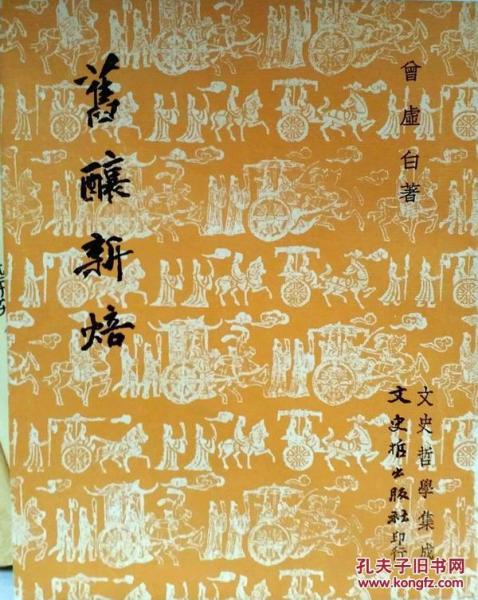 舊釀新焙
曾虛白著
文史哲學集成
文史哲出版社印行
孔夫子旧书网
www.kongfz.com